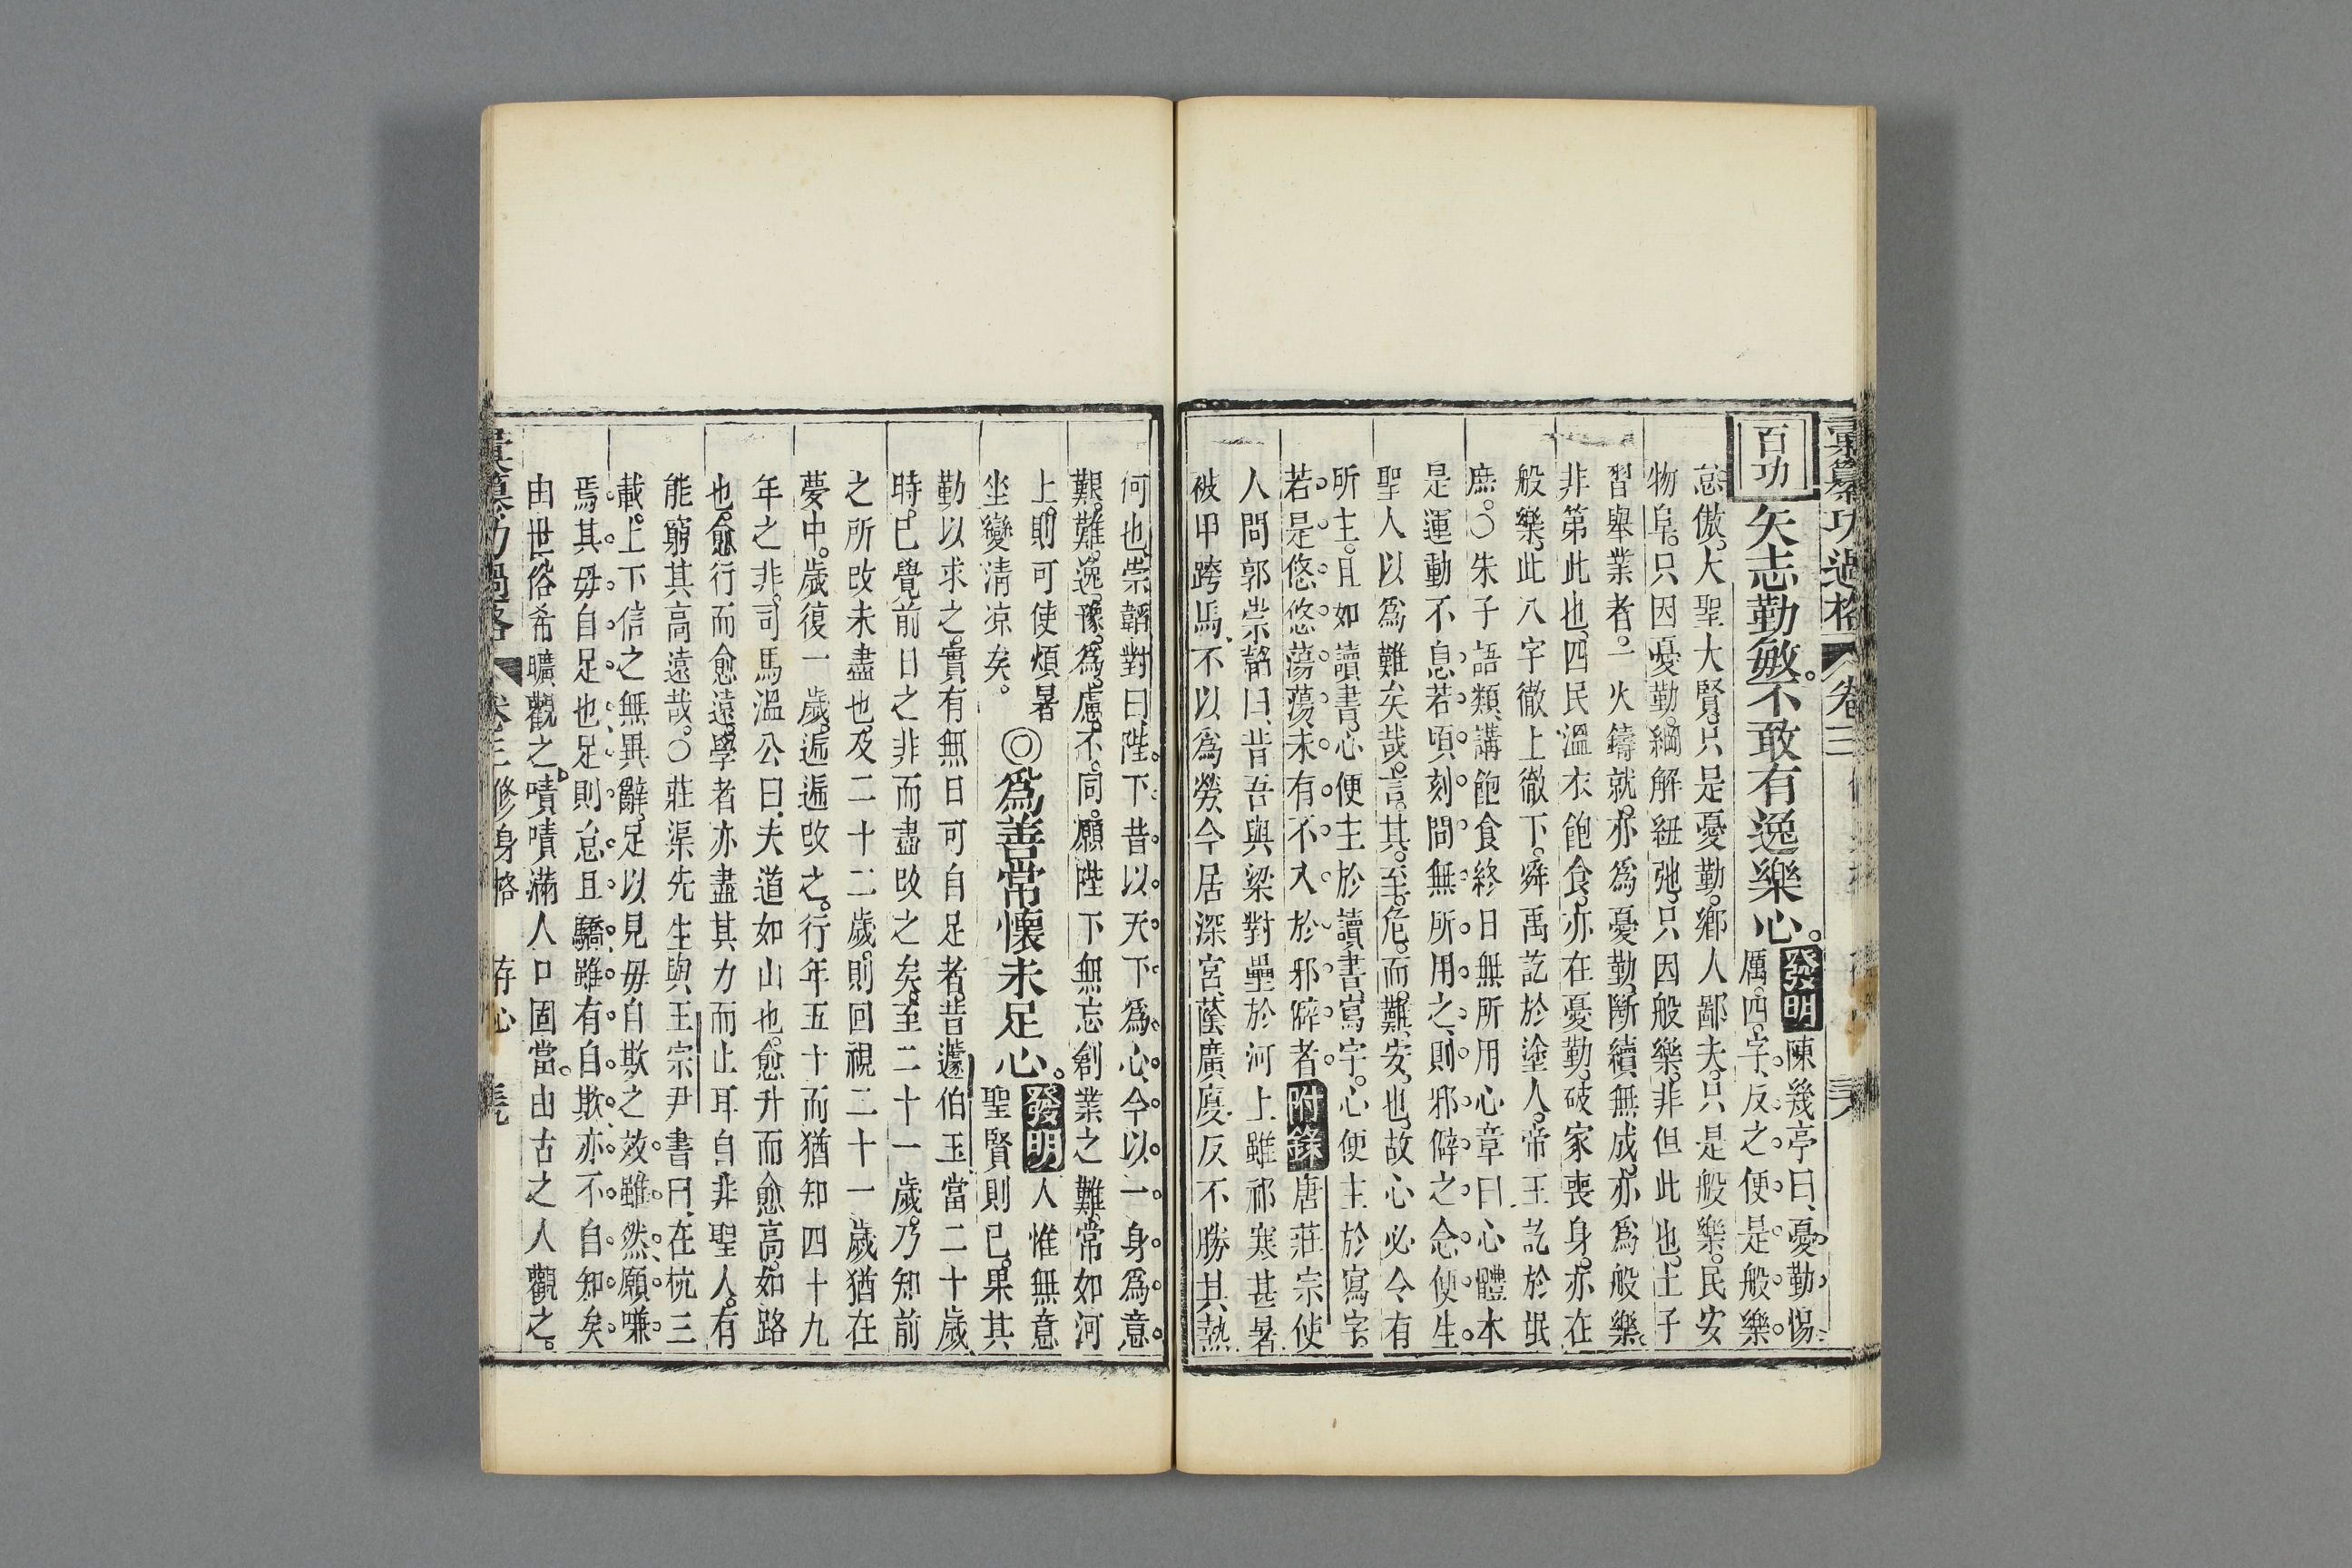 彙纂功過格 卷三
百功 矢志勤敏。不敢有逸樂心。發明陳幾亭曰、憂勤惕
厲。四字、反之便是般樂
怠傲。大聖大賢。只是憂勤。鄉人鄙夫。只是般樂。民安
物阜。只因憂勤。綱解紐弛。只因般樂。非但此也。士子
習舉業者。一火鑄就。亦為憂勤。斷續無成。亦為般樂。
非第此也、四民溫衣飽食。亦在憂勤。破家喪身。亦在
般樂。此八字徹上徹下。舜禹訖於塗人。帝王訖於氓
庶。○朱子語類、講飽食終日無所用心章曰、心體本
是運動不息。若頃刻間無所用之、則邪僻之念便生。
聖人以為難矣哉。言其至危而難安也、故心必令有
所主。且如讀書。心便主於讀書。寫字。心便主於寫字。
若是悠悠蕩蕩、未有不入於邪僻者。附錄唐莊宗使
人問郭崇韜曰、昔吾與梁對壘於河上、雖祁寒甚暑
被甲跨馬、不以為勞、今居深宮、蔭廣廈、反不勝其熱
何也、崇韜對曰、陛下昔以天下為心、今以一身為意
艱難逸豫。為慮不同。願陛下無忘創業之難、常如河
上。則可使煩暑
坐變清凉矣。
◎為善常懷未足心。發明人惟無意
聖賢則已。果其
勤以求之。實有無日可自足者。昔蘧伯玉當二十歲
時。已覺前日之非而盡改之矣。至二十一歲。乃知前
之所改未盡也。及二十二歲。則回視二十一歲猶在
夢中。歲復一歲。遞遞改之。行年五十而猶知四十九
年之非。司馬溫公曰、夫道如山也。愈升而愈高。如路
也。愈行而愈遠。學者亦盡其力而止耳。自非聖人。有
能窮其高遠哉。○莊渠先生與王宗尹書曰、在杭三
載。上下信之無異辭。足以見毋自欺之效。雖然、願嗛
焉其毋自足也、足則怠且驕、雖有自欺、亦不自知矣
由世俗希曠觀之。嘖嘖滿人口固當。由古之人觀之。
彙纂功過格 卷三 修身格 存心